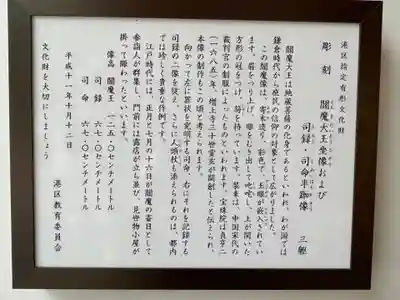 港区指定有形文化財
彫刻　閻魔大王坐像および
司録・司命半跏像　三軀
閻魔大王は地蔵菩薩の化身であるといわれ、わが国では
鎌倉時代から庶民の信仰の対象として広がりました。
この閻魔像は、寄木造り、彩色で、玉眼が嵌入されてい
ます。眉をつり上げ、眼をむき出して叱咤し、上が開いた
方形の冠をつけ、笏を持っています。装束は、中国宋代の
裁判官の制服によったものといわれます。宝珠院は貞享二
（一六八五）年、増上寺三十世霊玄が開創したと伝えられ、
本像の制作もこの頃と考えられます。
向かって左に罪状を宣明する司命、右にそれを記録する
司録の二像を従え、さらに人頭杖も添えられるのは、都内
では珍しく貴重な作例です。
江戸時代には、正月と七月の十六日が閻魔の斎日として
参詣人が群集し、門前には露店が立ち並び、見世物小屋が
掛って賑わったといいます。
像高　閻魔王　二一五・〇センチメートル
司録　六七・〇センチメートル
司命　六七・〇センチメートル
平成十一年十月十二日
港区教育委員会
文化財を大切にしましょう